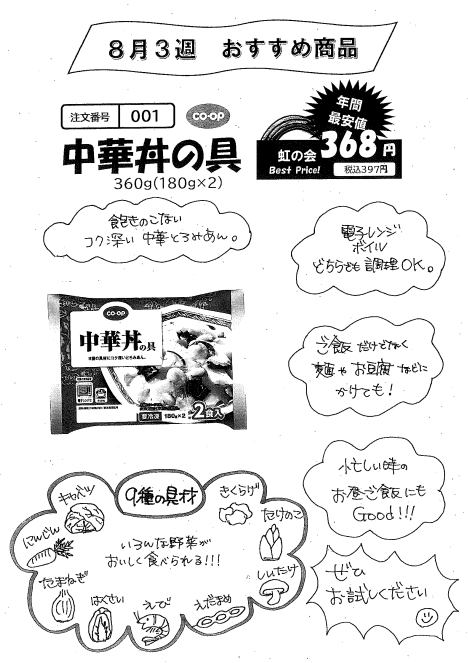 8月3週 おすすめ商品
注文番号 001
CO·OP
中華丼の具
360g(180g×2)
年間
最安値
虹の会
Best Price!
368円
税込397円
飽きのこない
コク深い 中華とろみあん。
電子レンジ
ボイル
どちらでも調理OK。
CO·OP
中華丼の具
9種の具材にコク深いとろみあん。
要冷凍 180g×2 2食入
ご飯だけでなく
麺やお豆腐などに
かけても!
忙しい時の
お昼ご飯にも
Good!!!
9種の具材
キャベツ
きくらげ
にんじん
たけのこ
いろんな野菜が
おいしく食べられる!!!
たまねぎ
しいたけ
はくさい
えび
えだまめ
ぜひ
お試しください